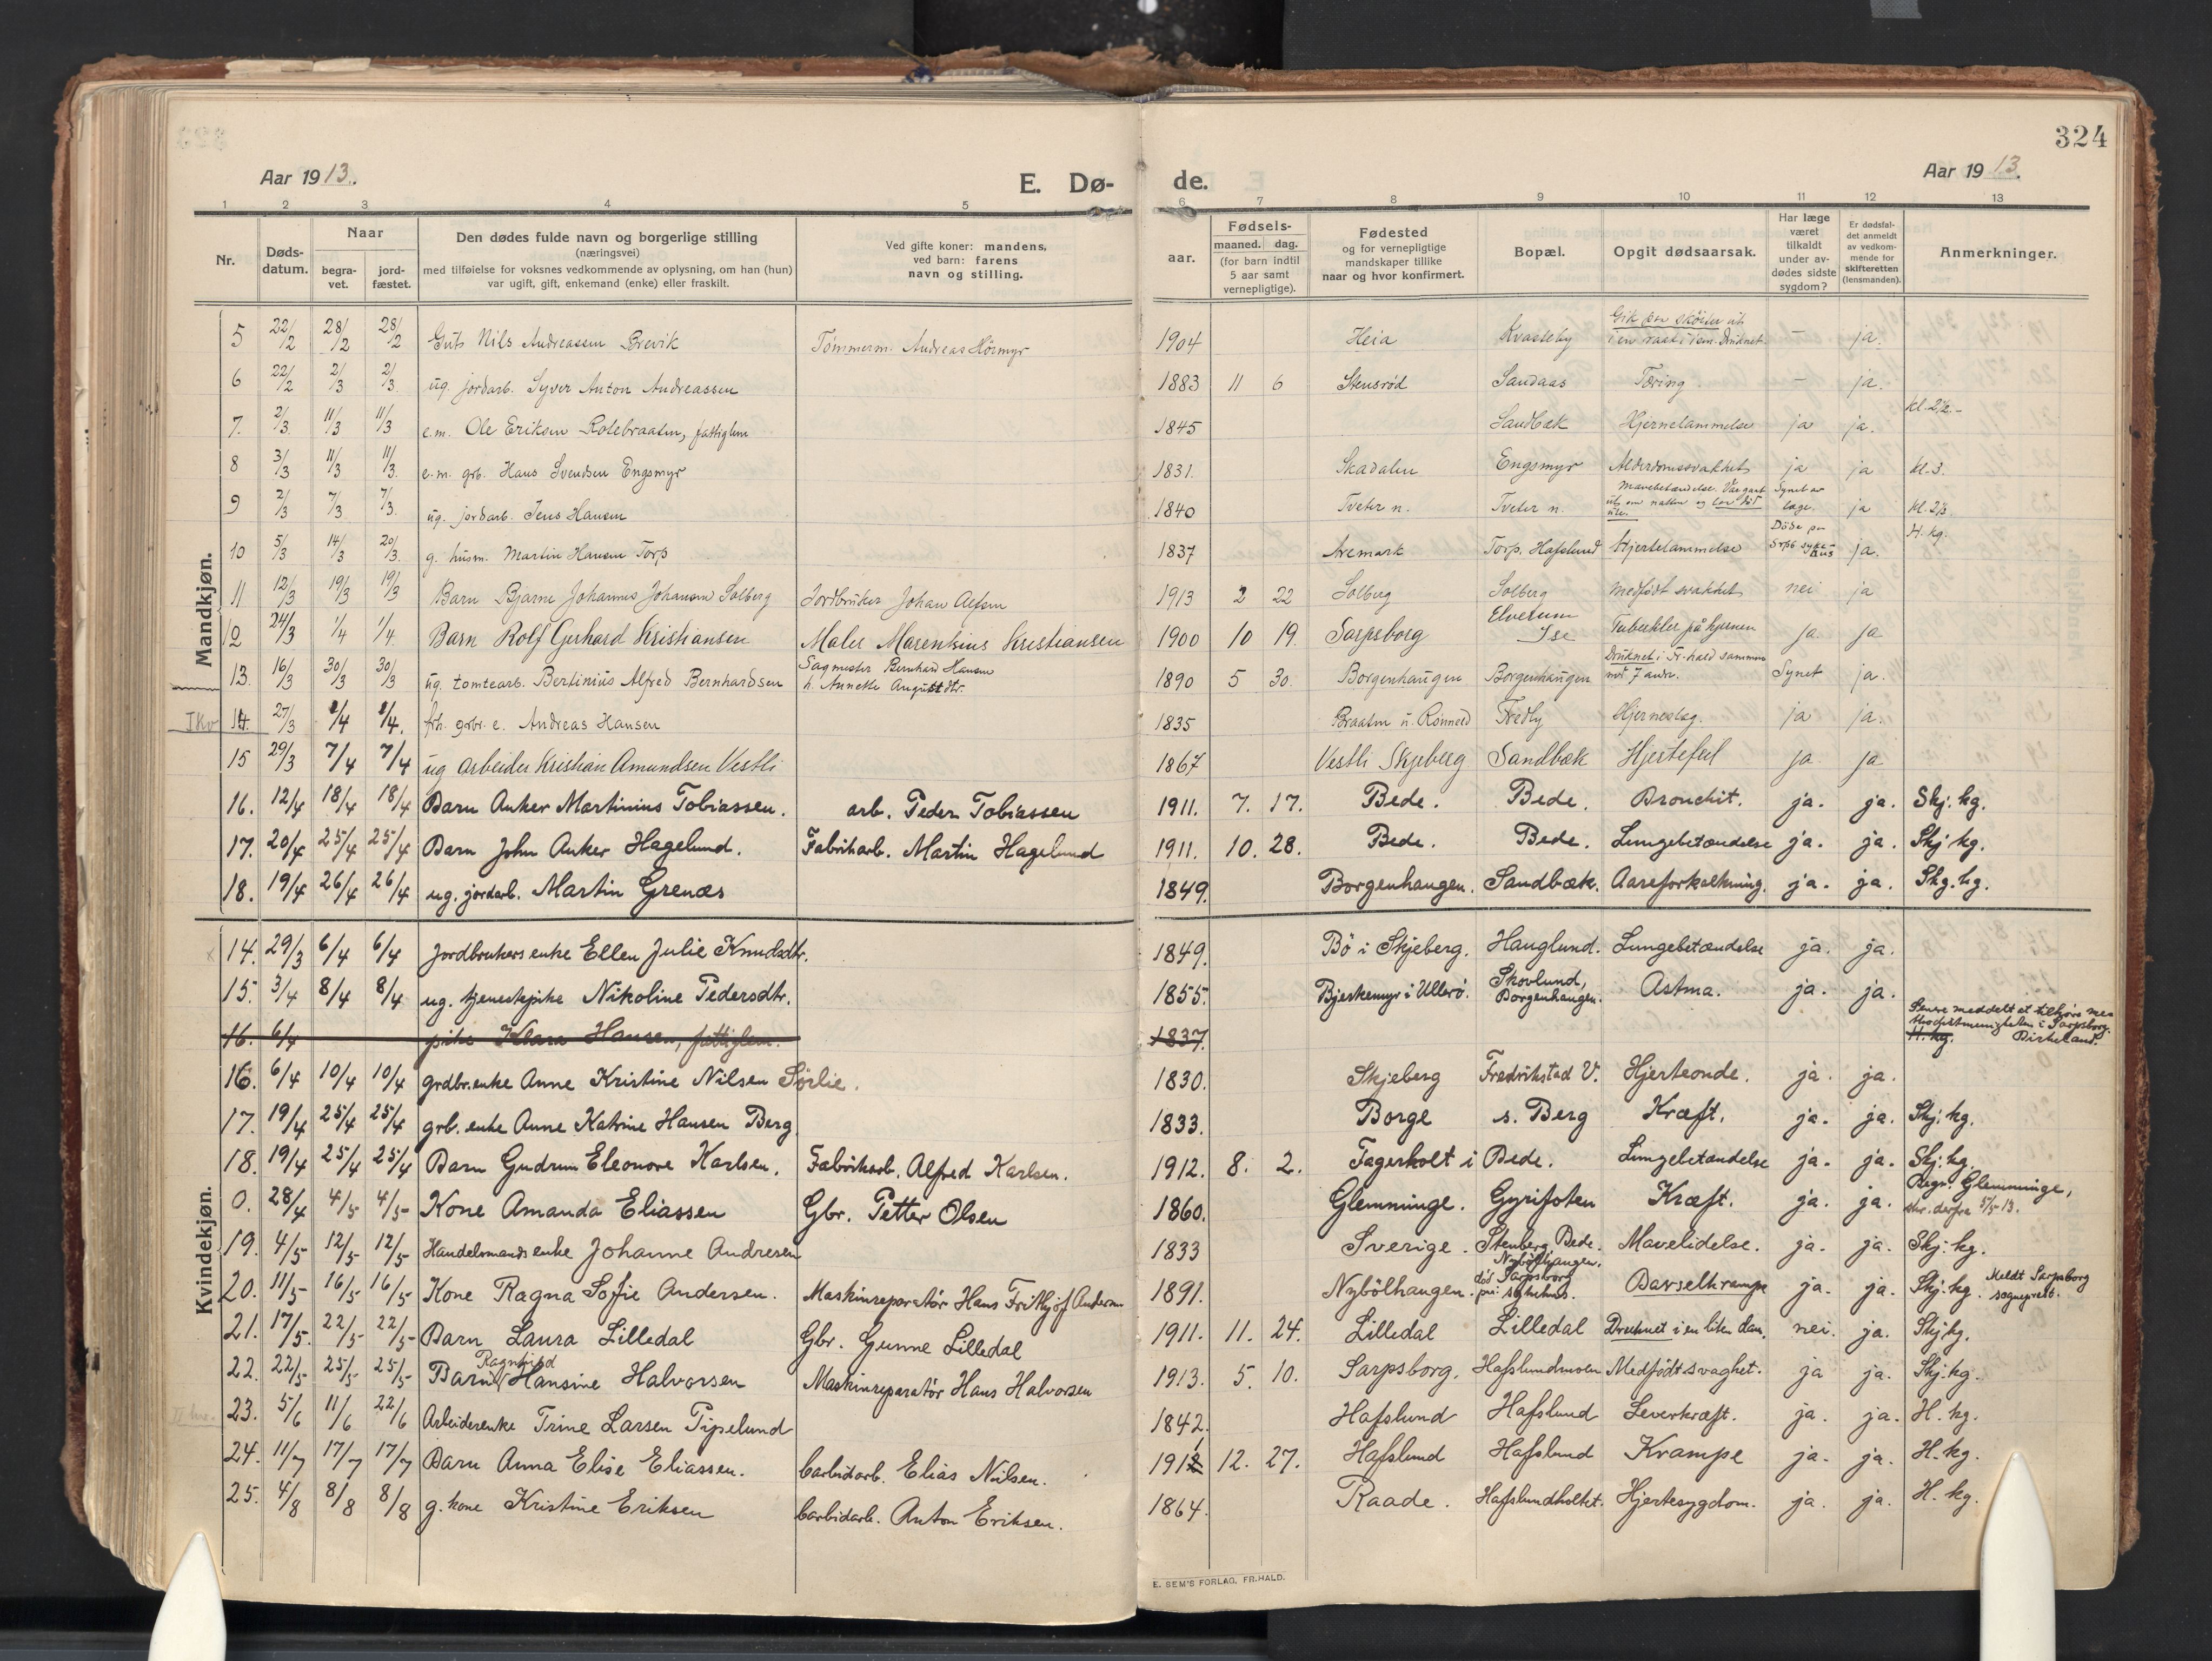 324
Aar 1913.
E. Dø-
de.
Aar 1913.
1 2 3 4 5 6 7 8 9 10 11 12 13
Nr.
Døds-
datum.
Naar
begra-
vet.
jord-
fæstet.
Den dødes fulde navn og borgerlige stilling
(næringsvei)
med tilføielse for voksnes vedkommende av oplysning, om han (hun)
var ugift, gift, enkemand (enke) eller fraskilt.
Ved gifte koner: mandens,
ved barn: farens
navn og stilling.
aar.
Fødsels-
maaned. dag.
(for barn indtil
5 aar samt
vernepligtige).
Fødested
og for vernepligtige
mandskaper tillike
naar og hvor konfirmert.
Bopæl.
Opgit dødsaarsak.
Har læge
været
tilkaldt
under av-
dødes sidste
sygdom?
Er dødsfal-
det anmeldt
av vedkom-
mende for
skifteretten
(lensmanden).
Anmerkninger.
Mandkjøn.
5 22/2 28/2 28/2 Guts Nils Andreassen Brevik Tømmerm. Andreas Hörmyr 1904 Heia Kvasteby Gik paa skøiter ut i en raak i isen. Druknet. — ja.
6 22/2 2/3 2/3 ug. jordarb. Syver Anton Andreassen 1883 11 6 Stensrød Sandaas Tæring — ja.
7. 2/3 11/3 11/3 e.m. Ole Eriksen Rolebraaten, fattiglem 1845 Sandbæk Hjernelammelse ja ja. kl. 2½.-
8 3/3 11/3 11/3 e.m. grb. Hans Svendsen Engsmyr 1831. Skadalen Engsmyr Alderdomssvakhet ja ja kl. 3.
9 2/3 7/3 7/3 ug. jordarb. Jens Hansen 1840 Tveter n. Tveter n. Mavebetændelse. Var gaat ut om natten og laa død ute. Synet av læge. ja
10 5/3 14/3 20/3 g. husm. Martin Hansen Torp 1837 Aremark Torp. Hafslund Hjertelammelse Døde paa Srpb syke-hus ja. H. kg.
11 12/3 19/3 19/3 Barn Bjarne Johannes Johansen Solberg Jordbruker Johan Alfsen 1913 2 22 Solberg Solberg medfødt svakhet nei ja
12 24/3 1/4 1/4 Barn Rolf Gerhard Kristiansen Maler Marenkius Kristiansen 1900 10 19. Sarpsborg Elvetun Ise Tuberkler på hjernen ja ja
13. 16/3 30/3 30/3 ug. tomtearb. Bertinius Alfred Bernhardsen Sagmester Bernhard Hansen h. Annette Augustdtr. 1890 5 30. Borgenhaugen Borgenhaugen Druknet i Fr.hald sammen med 7 andre. Synet ja.
I Kv 14. 27/3 2/4 2/4. frh. grbr. e. Andreas Hansen 1835 Braaten u. Rønneld Fredly Hjerneslag. ja ja.
15 29/3 7/4 7/4 ug arbeider Kristian Amundsen Vestli 1867 Vestli Skjeberg Sandbæk Hjertefeil ja ja
16. 12/4 18/4 18/4 Barn Anker Martinius Tobiassen. arb. Peder Tobiassen 1911. 7. 17. Bede. Bede. Bronchit. ja. ja. Skj. kg.
17. 20/4 25/4 25/4 Barn John Anker Hagelund. Fabrikarb. Martin Hagelund 1911. 10. 28. Bede. Bede. Lungebetændelse ja. ja. Skj kg.
18. 19/4 26/4 26/4 ug. jordarb. Martin Grenæs 1849. Borgenhaugen. Sandbæk. Aareforkalkning. ja. ja. Skg. kg.
Kvindekjøn.
14. 29/3 6/4 6/4 Jordbrukers enke Ellen Julie Knudsdtr. 1849. Bö i Skjeberg. Hauglund. Lungebetændelse ja. ja.
15. 3/4 8/4 8/4 ug. tjenestepike Nikoline Pedersdtr. 1855. Bjerkemyr i Ullerö. Skovlund, Borgenhaugen. Astma. ja. ja.
16. 6/4 pike Klara Hansen, fattiglem. 1837. H. kg. Senere meddelt at tilhøre i Sarpsborg. Birkeland.
16. 6/4 10/4 10/4 grdbr.enke Anne Kristine Nilsen Sørlie. 1830. Skjeberg Fredrikstad V. Hjerteonde. ja. ja.
17. 19/4 25/4 25/4 grb. enke Anne Katrine Hansen Berg 1833. Borge s. Berg Kræft. ja. ja. Skj. kg.
18. 19/4 25/4 25/4 Barn Gudrun Eleonore Karlsen. Fabrikarb. Alfred Karlsen. 1912. 8. 2. Fagerholt i Bede. Lungebetændelse ja. ja. Skj: kg.
0. 28/4 4/5 4/5 Kone Amanda Eliassen Gbr. Petter Olsen 1860. Glemminge. Gyrifoten Kræft. ja. ja. Begr. Glemminge, skr. derfra 5/5 13.
19. 4/5 12/5 12/5 Handelsmands enke Johanne Andresen 1833 Sverige. Stenberg, Bede. Mavelidelse. ja. ja. Skj: kg.
20. 11/5 16/5 16/5 Kone Ragna Sofie Andersen. Maskinreparatør Hans Frithjof Andersen 1891. Nybölhaugen. Nybölhaugen, død Sarpsborg sykehus. Barselkrampe ja. ja. Skj. kg. Meldt Sarpsborg sogneprest.
21. 17/5. 22/5 22/5 Barn Laura Lilledal Gbr. Gunne Lilledal 1911. 11. 24. Lilledal Lilledal Druknet i en liten dam. nei. ja. Skj kg.
22. 22/5 25/5 25/5 Barn Ragnhild Hansine Halvorsen Maskinreparatør Hans Halvorsen 1913. 5. 10. Sarpsborg. Hafslundmoen Medfödt svaghet. ja ja. Skj. kg.
II kv. 23. 5/6 11/6 22/6 Arbeiderenke Trine Larsen Pipelund 1842. Hafslund Hafslund Leverkræft. ja. ja. H. kg.
24. 11/7 17/7 17/7 Barn Anna Elise Eliassen. Carbidarb. Elias Nilsen. 1911 12. 27. Hafslund Hafslund Krampe ja. ja. H. kg.
25. 4/8 8/8 8/8 g. kone Kristine Eriksen Carbidarb. Anton Eriksen. 1864. Raade. Hafslundholtet. Hjertesygdom. ja. ja. H. kg.
E. SEM'S FORLAG, FR.HALD.